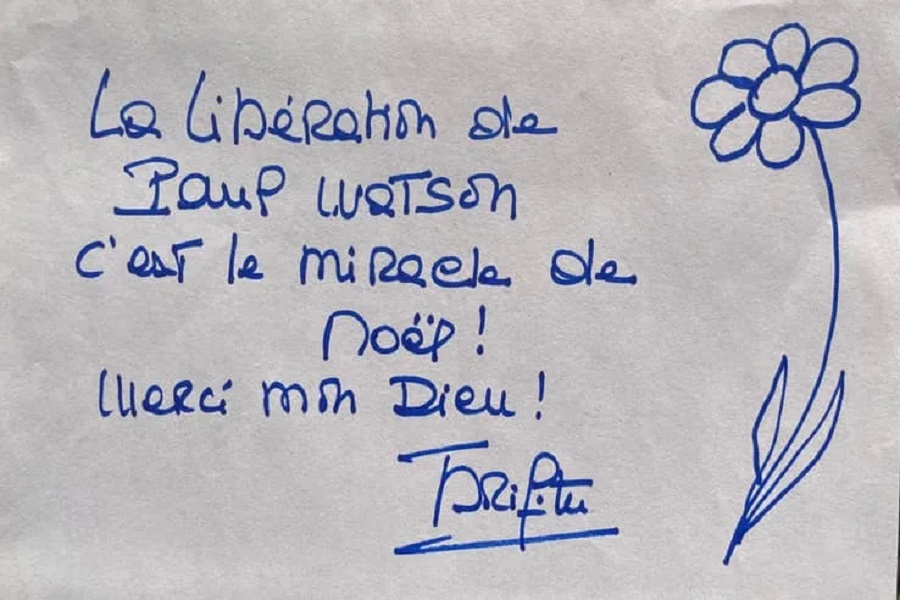 La Libération de
Paul Watson
c'est le miracle de
Noël !
Merci mon Dieu !